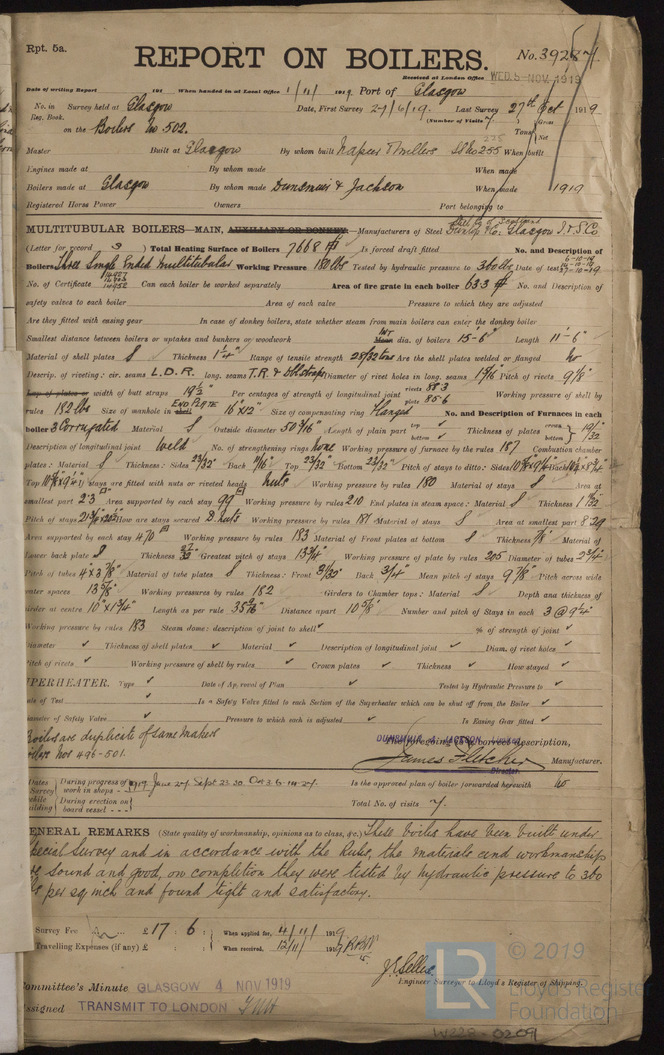 Rpt. 5a.
REPORT ON BOILERS.
No. 39287
Received at London Office WED. 5 NOV. 1919
Date of writing Report 191 When handed in at Local Office 1/11/ 1919 Port of Glasgow
No. in Survey held at Glasgow Date, First Survey 27/6/19. Last Survey 27th Oct 1919
Reg. Book. (Number of Visits 7)
on the Boilers No 502. Gross Tons Net
Master Built at Glasgow By whom built Napier & Millers S/No 255 When built
Engines made at By whom made When made
Boilers made at Glasgow By whom made Dunsmuir & Jackson When made 1919
Registered Horse Power Owners Port belonging to
MULTITUBULAR BOILERS—MAIN, AUXILIARY OR DONKEY.—Manufacturers of Steel Steel Co of Scotland Dunlop & Co. Glasgow I. & S. Co.
(Letter for record S) Total Heating Surface of Boilers 7668 Is forced draft fitted No. and Description of
Boilers Three Single Ended Multitubular Working Pressure 180 lbs Tested by hydraulic pressure to 360 lbs Date of test 6-10-19 14-10-19 27-10-19
No. of Certificate 14927 14952 Can each boiler be worked separately Area of fire grate in each boiler 63.3 No. and Description of
safety valves to each boiler Area of each valve Pressure to which they are adjusted
Are they fitted with easing gear In case of donkey boilers, state whether steam from main boilers can enter the donkey boiler
Smallest distance between boilers or uptakes and bunkers or woodwork Int dia. of boilers 15'-6" Length 11'-6"
Material of shell plates S Thickness 1 1/4" Range of tensile strength 28/32 tons Are the shell plates welded or flanged no
Descrip. of riveting: cir. seams L.D.R. long. seams T.R. & dbl straps Diameter of rivet holes in long. seams 1 5/16 Pitch of rivets 9 1/8"
Lap of plates or width of butt straps 19 1/2" Per centages of strength of longitudinal joint rivets 88.3 plate 85.6 Working pressure of shell by
rules 182 lbs Size of manhole in shell END PLATE 16"x12" Size of compensating ring flanged No. and Description of Furnaces in each
boiler 3 Corrugated Material S Outside diameter 50 3/16" Length of plain part top bottom Thickness of plates crown bottom 19/32"
Description of longitudinal joint Weld No. of strengthening rings none Working pressure of furnace by the rules 187 Combustion chamber
plates: Material S Thickness: Sides 23/32" Back 11/16" Top 23/32" Bottom 23/32" Pitch of stays to ditto: Sides Back
Top If stays are fitted with nuts or riveted heads nuts Working pressure by rules 180 Material of stays S Area at
smallest part 2.3 Area supported by each stay 99 Working pressure by rules 210 End plates in steam space: Material S Thickness 1 7/32"
Pitch of stays How are stays secured D. nuts Working pressure by rules 181 Material of stays S Area at smallest part 8.29
Area supported by each stay 470 Working pressure by rules 183 Material of Front plates at bottom S Thickness 7/8" Material of
Lower back plate S Thickness 27/32" Greatest pitch of stays 13 3/4" Working pressure of plate by rules 205 Diameter of tubes 2 3/4"
Pitch of tubes 4"x3 7/8" Material of tube plates S Thickness: Front 31/32" Back 3/4" Mean pitch of stays 9 7/8" Pitch across wide
water spaces 13 5/8" Working pressures by rules 182 Girders to Chamber tops: Material S Depth and thickness of
girder at centre 10"x1 3/4" Length as per rule Distance apart 10 5/8" Number and pitch of Stays in each 3 @ 9 1/4"
Working pressure by rules 183 Steam dome: description of joint to shell % of strength of joint
Diameter Thickness of shell plates Material Description of longitudinal joint Diam. of rivet holes
Pitch of rivets Working pressure of shell by rules Crown plates Thickness How stayed
UPERHEATER. Type Date of Approval of Plan Tested by Hydraulic Pressure to
ate of Test Is a Safety Valve fitted to each Section of the Superheater which can be shut off from the Boiler
iameter of Safety Valve Pressure to which each is adjusted Is Easing Gear fitted
Boilers are duplicate of same makers
Boilers Nos 496-501.
The foregoing is a correct description,
DUNSMUIR & JACKSON, Limited
James Fletcher Manufacturer.
Director.
Dates of Survey while building During progress of work in shops - - 1919 June 27 Sept 23.30 Oct 3.6.14.27. Is the approved plan of boiler forwarded herewith no
During erection on board vessel - - - Total No. of visits 7.
ENERAL REMARKS (State quality of workmanship, opinions as to class, &c.) These boilers have been built under
special survey and in accordance with the Rules, the materials and workmanship
are sound and good, on completion they were tested by hydraulic pressure to 360
lbs per sq inch and found tight and satisfactory.
Survey Fee £17 : 6 : When applied for, 4/11/ 1919
Travelling Expenses (if any) £ : : When received, 12/11/ 1919
J. S. Sellex.
Engineer Surveyor to Lloyd's Register of Shipping.
Committee's Minute GLASGOW 4 NOV 1919
Assigned TRANSMIT TO LONDON
© 2019
LR
Lloyd's Register
Foundation
W229-0209